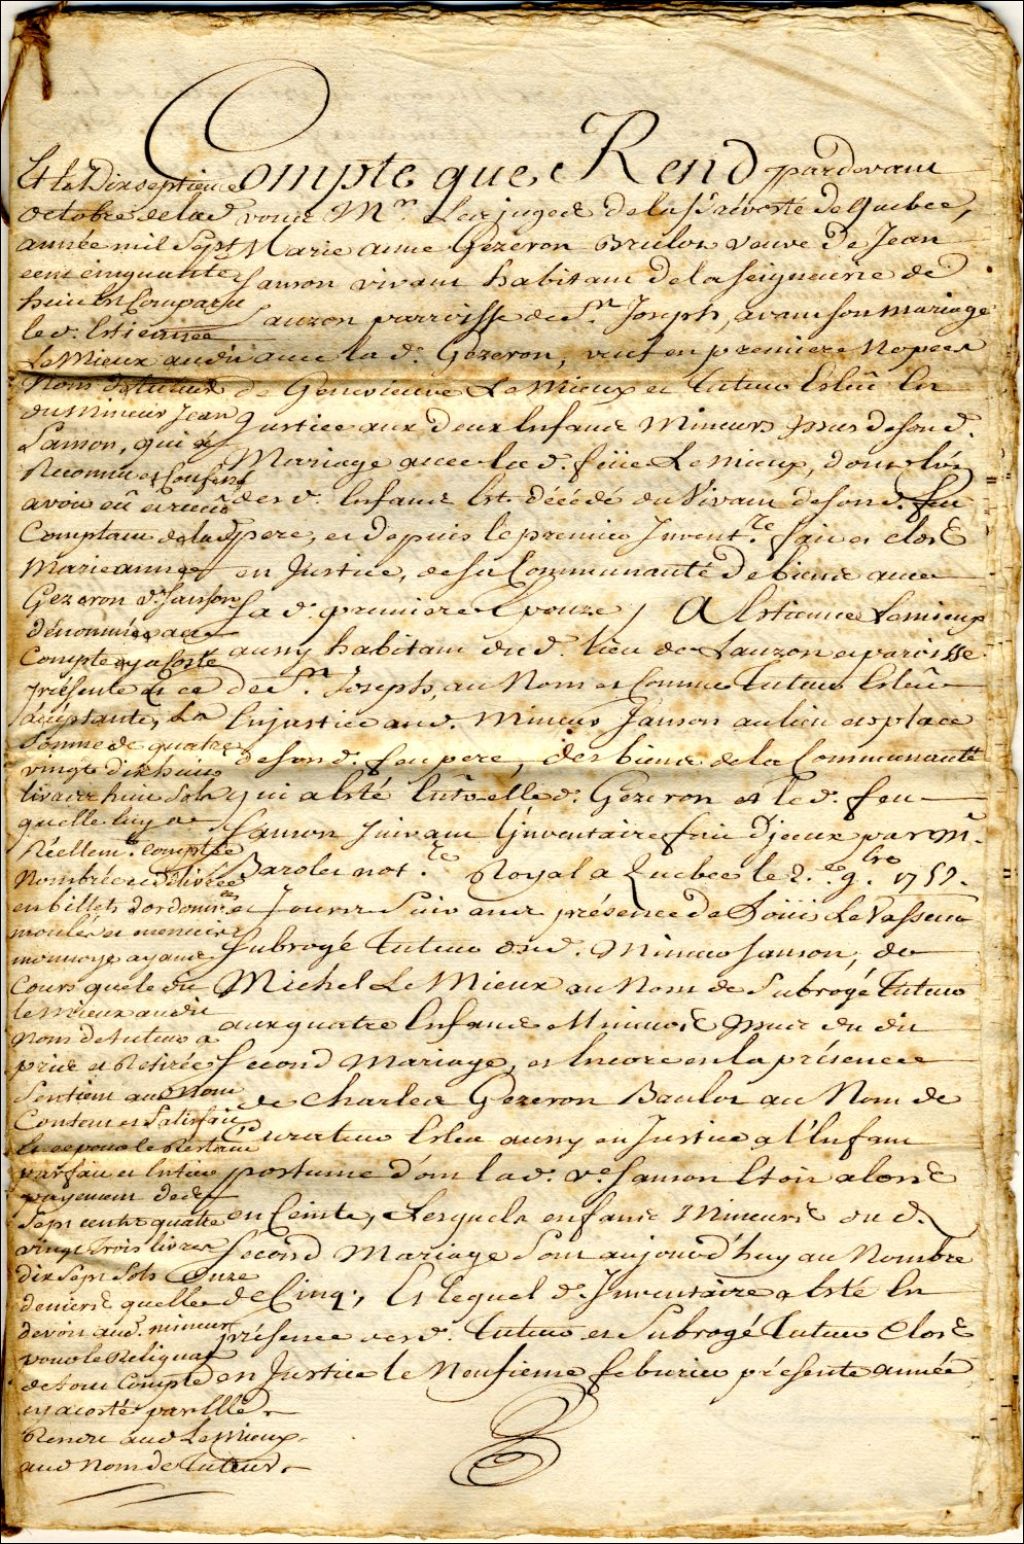 Compte que Rend pardevant
vous Mrs Les juges de la Prévosté de Quebec,
Marie anne Gezeron Brulot veuve de Jean
Samson vivant habitant de la Seigneurie de
Lauzon parroisse de St. Joseph, avant son mariage
avec la d. Gezeron, veuf en premiere Nopces
de Genevieve Le Mieux et Tuteur Esleû En
Justice aux deux Enfans Mineurs Issus de son d.
Mariage avec la d. feüe Le Mieux, dont l'un
des d. Enfans Est décédé du Vivant de son d. feu
pere, et depuis le premier Invent.re fait et clos
en Justice, de sa Communauté de biens avec
sa d. premiere Epouze, A Estienne Lemieux
aussy habitant du d. lieu de Lauzon et paroisse
de St. Joseph, au Nom et Comme Tuteur Esleû
En justice au d. Mineur Samson au lieu et place
de son d. feu pere, des biens de la Communauté
qui a Esté Entre elle d. Gezeron et le d. feu
Samson suivant l'inventaire fait d'jceux par M.
Barolet not.re Royal a Quebec le 2.e 9.bre 1757.
et Jours Suivans présence de Loüis Le Vasseur
Subrogé Tuteur du d. Mineur Samson, de
Michel Le Mieux au Nom de Subrogé Tuteur
aux quatre Enfans Mineurs Issus du dit
Second Mariage, et Encore en la présence
de Charles Gezeron Baulot au Nom de
Curateur Esleu aussy en Justice a l'Enfant
postume dont la d. ve. Samson Etoit alors
en Ceinte, Lesquels enfans Mineurs du d.
Second Mariage Sont aujourd'huy au Nombre
de Cinq, Et lequel d. Inventaire a Esté En
présence des d. Tuteur et Subrogé Tuteur Clos
en Justice le Neufieme feburier présente année
Et le Dix septieme
octobre de la d.
année mil Sept
cent cinquante
huit Est Comparu
le d. Estienne
Le Mieux au dit
Nom de tuteur
du Mineur Jean
Samson, qui a
Reconnu et Confessé
avoir eû et receu
Comptant de la d.
Marie anne
Gezeron ve. Samson
dénommée au
Compte cy a Costé
présente et ce
acceptante, La
Somme de quatre
vingt dix huit
livres huit Sols
quelle luy a
Réellemt. comptée
Nombrée et délivrée
en billets d'ordonnces
moulés et menues
monnoye ayant
Cours que le dit
le Mieux au dit
Nom de tuteur a
pris et Retirée
S'en tient au d. Nom
Content et Satisfait
Et ce pour le Restant
parfait et Entier
payement de
Sept cents quatre
vingt Trois livres
dix Sept Sols Onze
deniers quelle
devoit au d. mineur
pour le Reliquat
de Son Compte
cy a costé par Elle
Rendu au d. Le Mieux
au d. Nom de Tuteur.